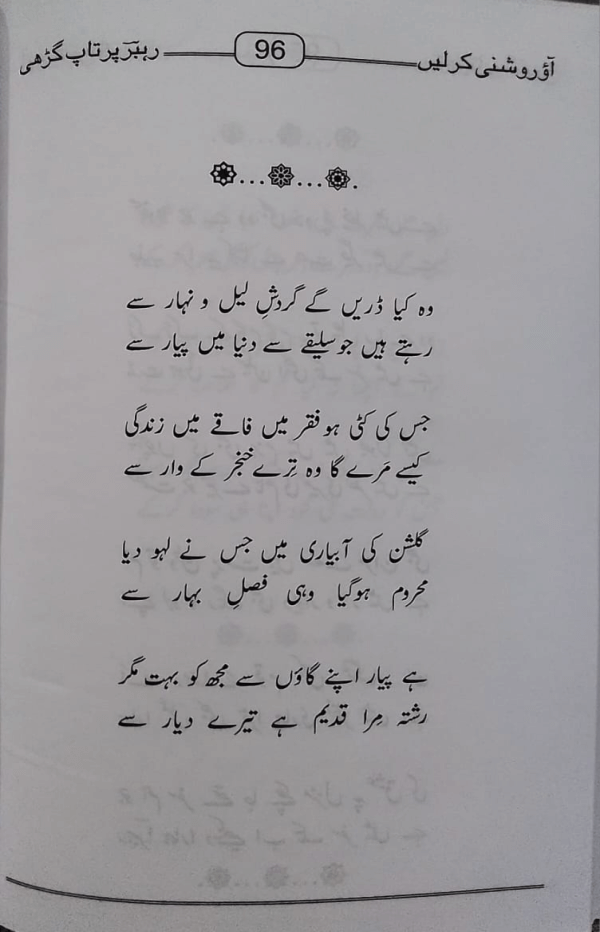 آؤ روشنی کر لیں 96 رہبرؔ پرتاپ گڑھی
وہ کیا ڈریں گے گردشِ لیل و نہار سے
رہتے ہیں جو سلیقے سے دنیا میں پیار سے
جس کی کٹی ہو فقر میں فاقے میں زندگی
کیسے مَرے گا وہ تِرے خنجر کے وار سے
گلشن کی آبیاری میں جس نے لہو دیا
محروم ہوگیا وہی فصلِ بہار سے
ہے پیار اپنے گاؤں سے مجھ کو بہت مگر
رشتہ مِرا قدیم ہے تیرے دیار سے